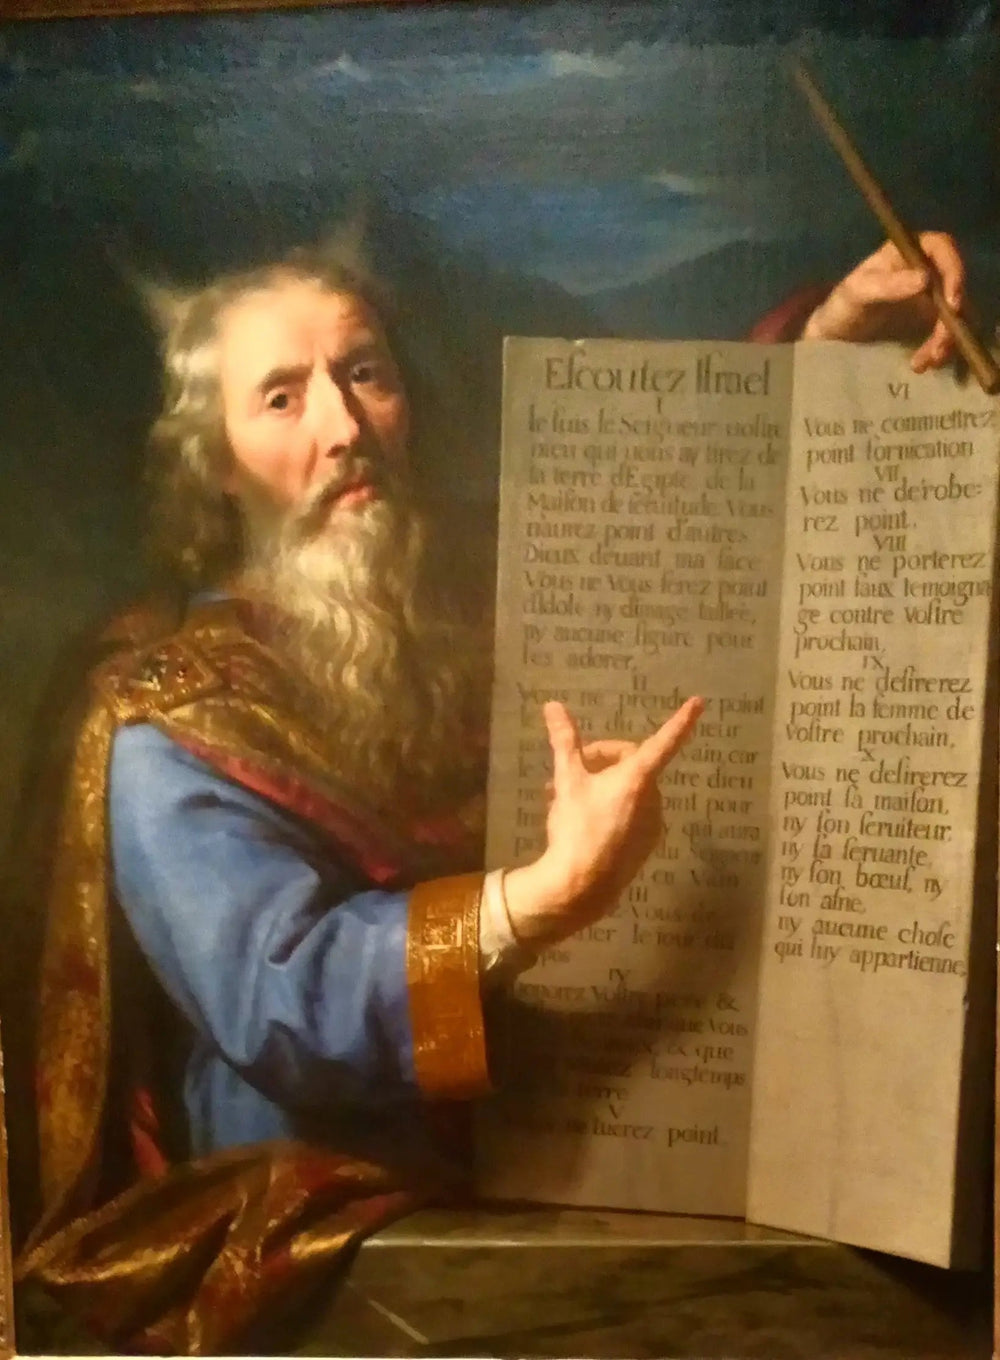 Escoutez Israel
I
Ie suis le Seigneur vostre
Dieu qui vous ay tirez de
la terre d'Egipte, de la
Maison de seruitude. Vous
n'aurez point d'autres
Dieux deuant ma face
Vous ne Vous ferez point
d'Idole ny d'image taillée,
ny aucune figure pour
les adorer.
II
Vous ne prendrez point
du
Vain, car
dieu
pour
qui aura
du Seigneur
en Vain
III
Vous
le iour du
IV
honorez Vostre pere &
que Vous
& que
longtemps
terre
V
ne tuerez point.
VI
Vous ne commettrez
point fornication
VII
Vous ne derobe=
rez point.
VIII
Vous ne porterez
point faux temoigna
ge contre Vostre
prochain.
IX
Vous ne desirerez
point la femme de
Vostre prochain.
X
Vous ne desirerez
point sa maison,
ny son seruiteur,
ny sa seruante,
ny son bœuf, ny
son asne,
ny aucune chose
qui luy appartienne.